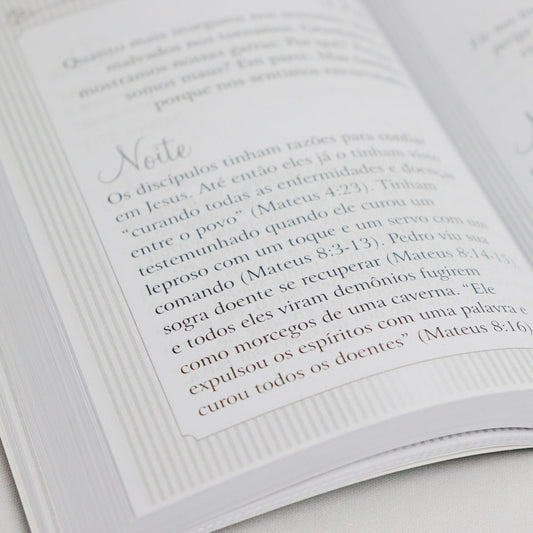 Quanto mais inseguros nos sentimos, mais
malvados nos tornamos.
mostramos nossas garras. Por quê?
somos maus? Em parte. Mas
porque nos sentimos encurralados
Noite
Os discípulos tinham razões para confiar
em Jesus. Até então eles já o tinham visto
“curando todas as enfermidades e doenças
entre o povo” (Mateus 4:23). Tinham
testemunhado quando ele curou um
leproso com um toque e um servo com um
comando (Mateus 8:3-13). Pedro viu sua
sogra doente se recuperar (Mateus 8:14-15)
e todos eles viram demônios fugirem
como morcegos de uma caverna. “Ele
expulsou os espíritos com uma palavra e
curou todos os doentes” (Mateus 8:16)